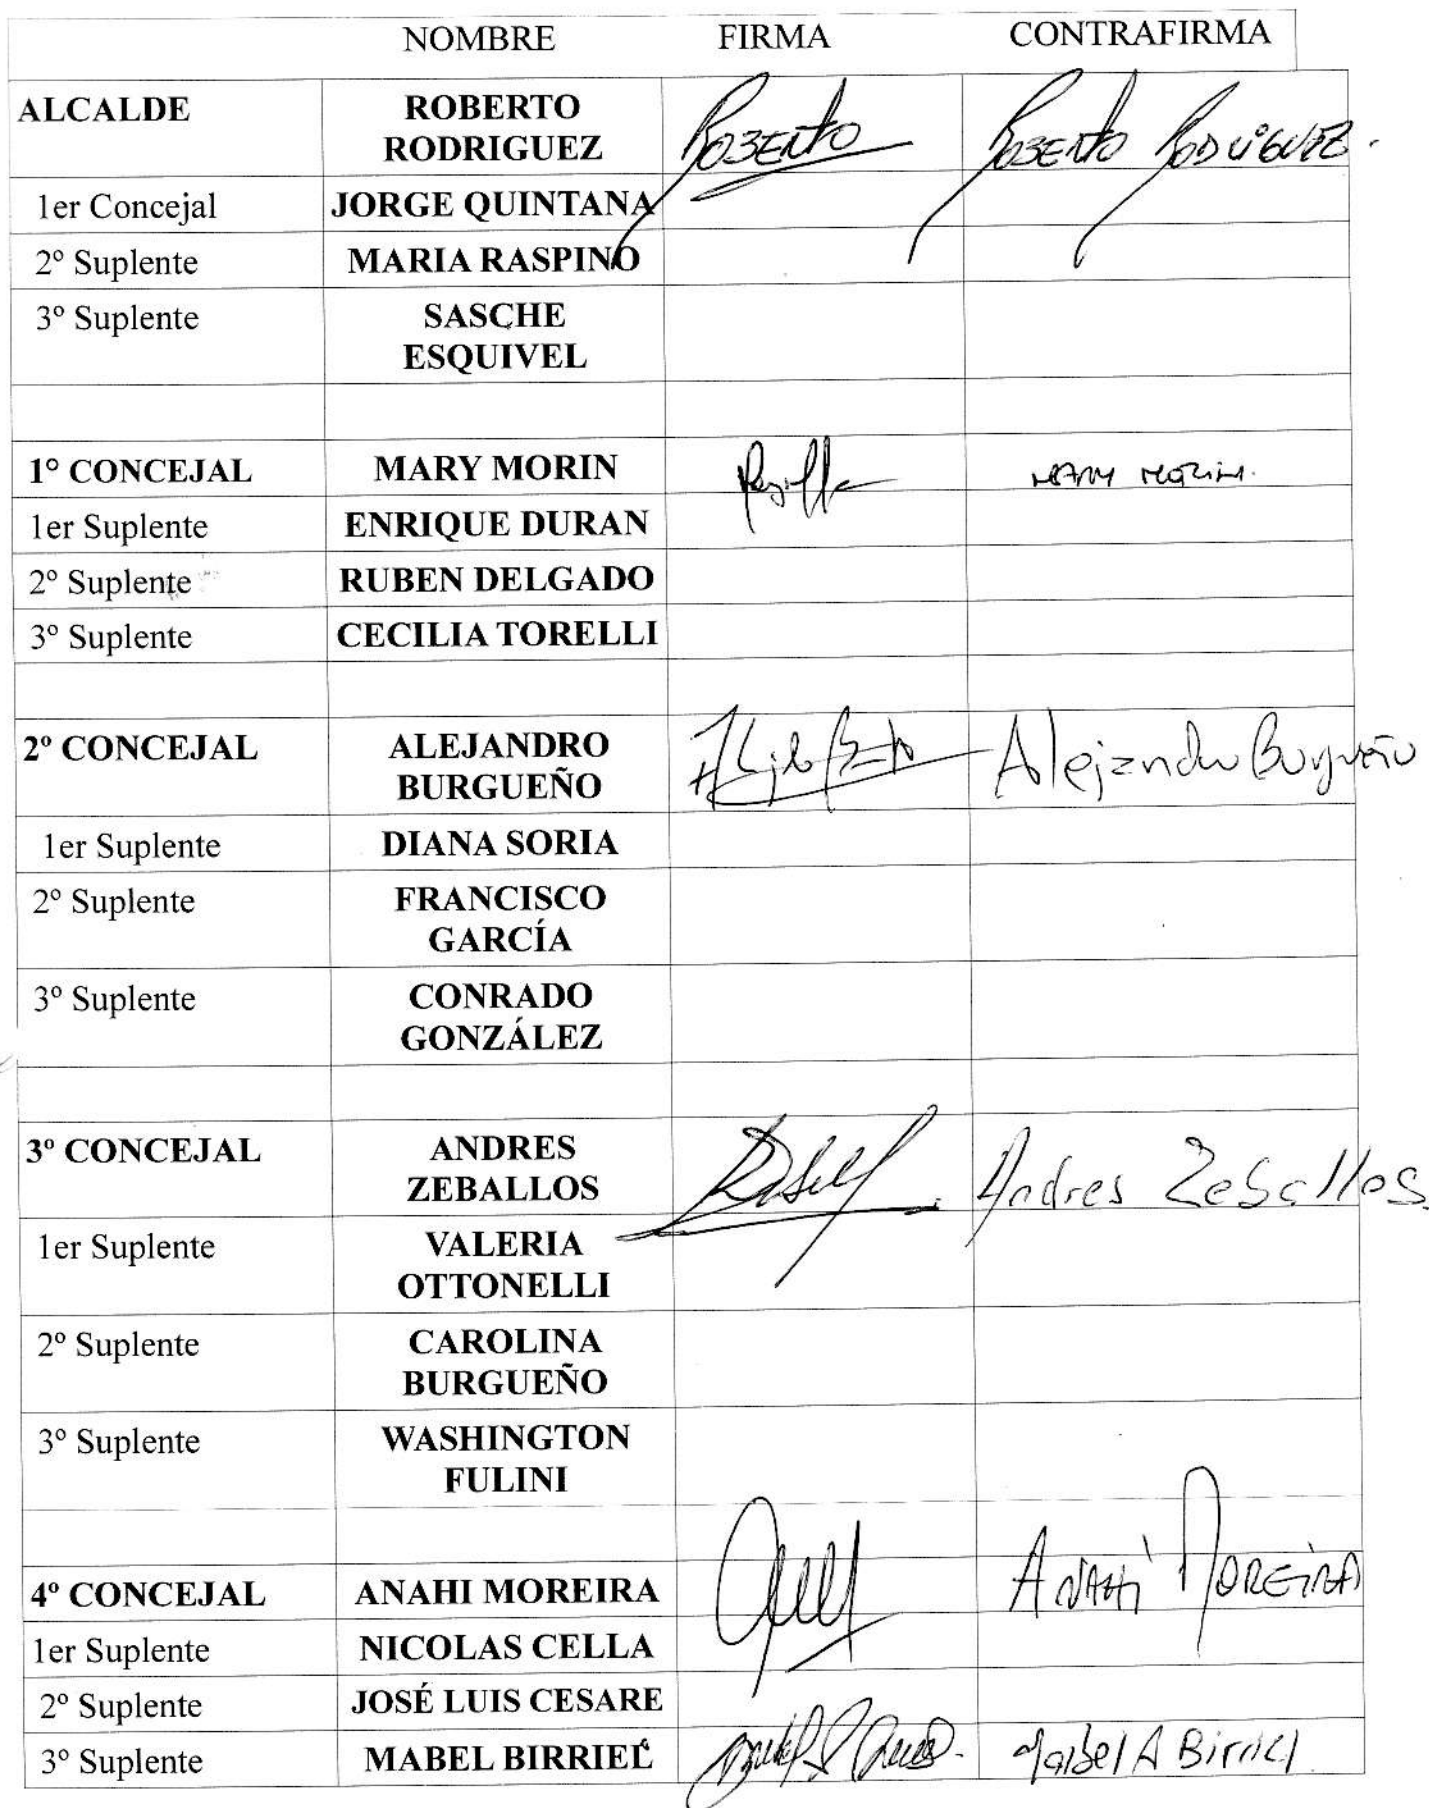 NOMBRE FIRMA CONTRAFIRMA
ALCALDE ROBERTO RODRIGUEZ Roberto Roberto Rodriguez.
1er Concejal JORGE QUINTANA
2º Suplente MARIA RASPINO
3º Suplente SASCHE ESQUIVEL
1º CONCEJAL MARY MORIN MARY MORIN.
1er Suplente ENRIQUE DURAN
2º Suplente RUBEN DELGADO
3º Suplente CECILIA TORELLI
2º CONCEJAL ALEJANDRO BURGUEÑO Alejandro Burgueño
1er Suplente DIANA SORIA
2º Suplente FRANCISCO GARCÍA
3º Suplente CONRADO GONZÁLEZ
3º CONCEJAL ANDRES ZEBALLOS Andres Zeballos.
1er Suplente VALERIA OTTONELLI
2º Suplente CAROLINA BURGUEÑO
3º Suplente WASHINGTON FULINI
4º CONCEJAL ANAHI MOREIRA ANAHÍ MOREIRA
1er Suplente NICOLAS CELLA
2º Suplente JOSÉ LUIS CESARE
3º Suplente MABEL BIRRIEL Mabel A Birriel